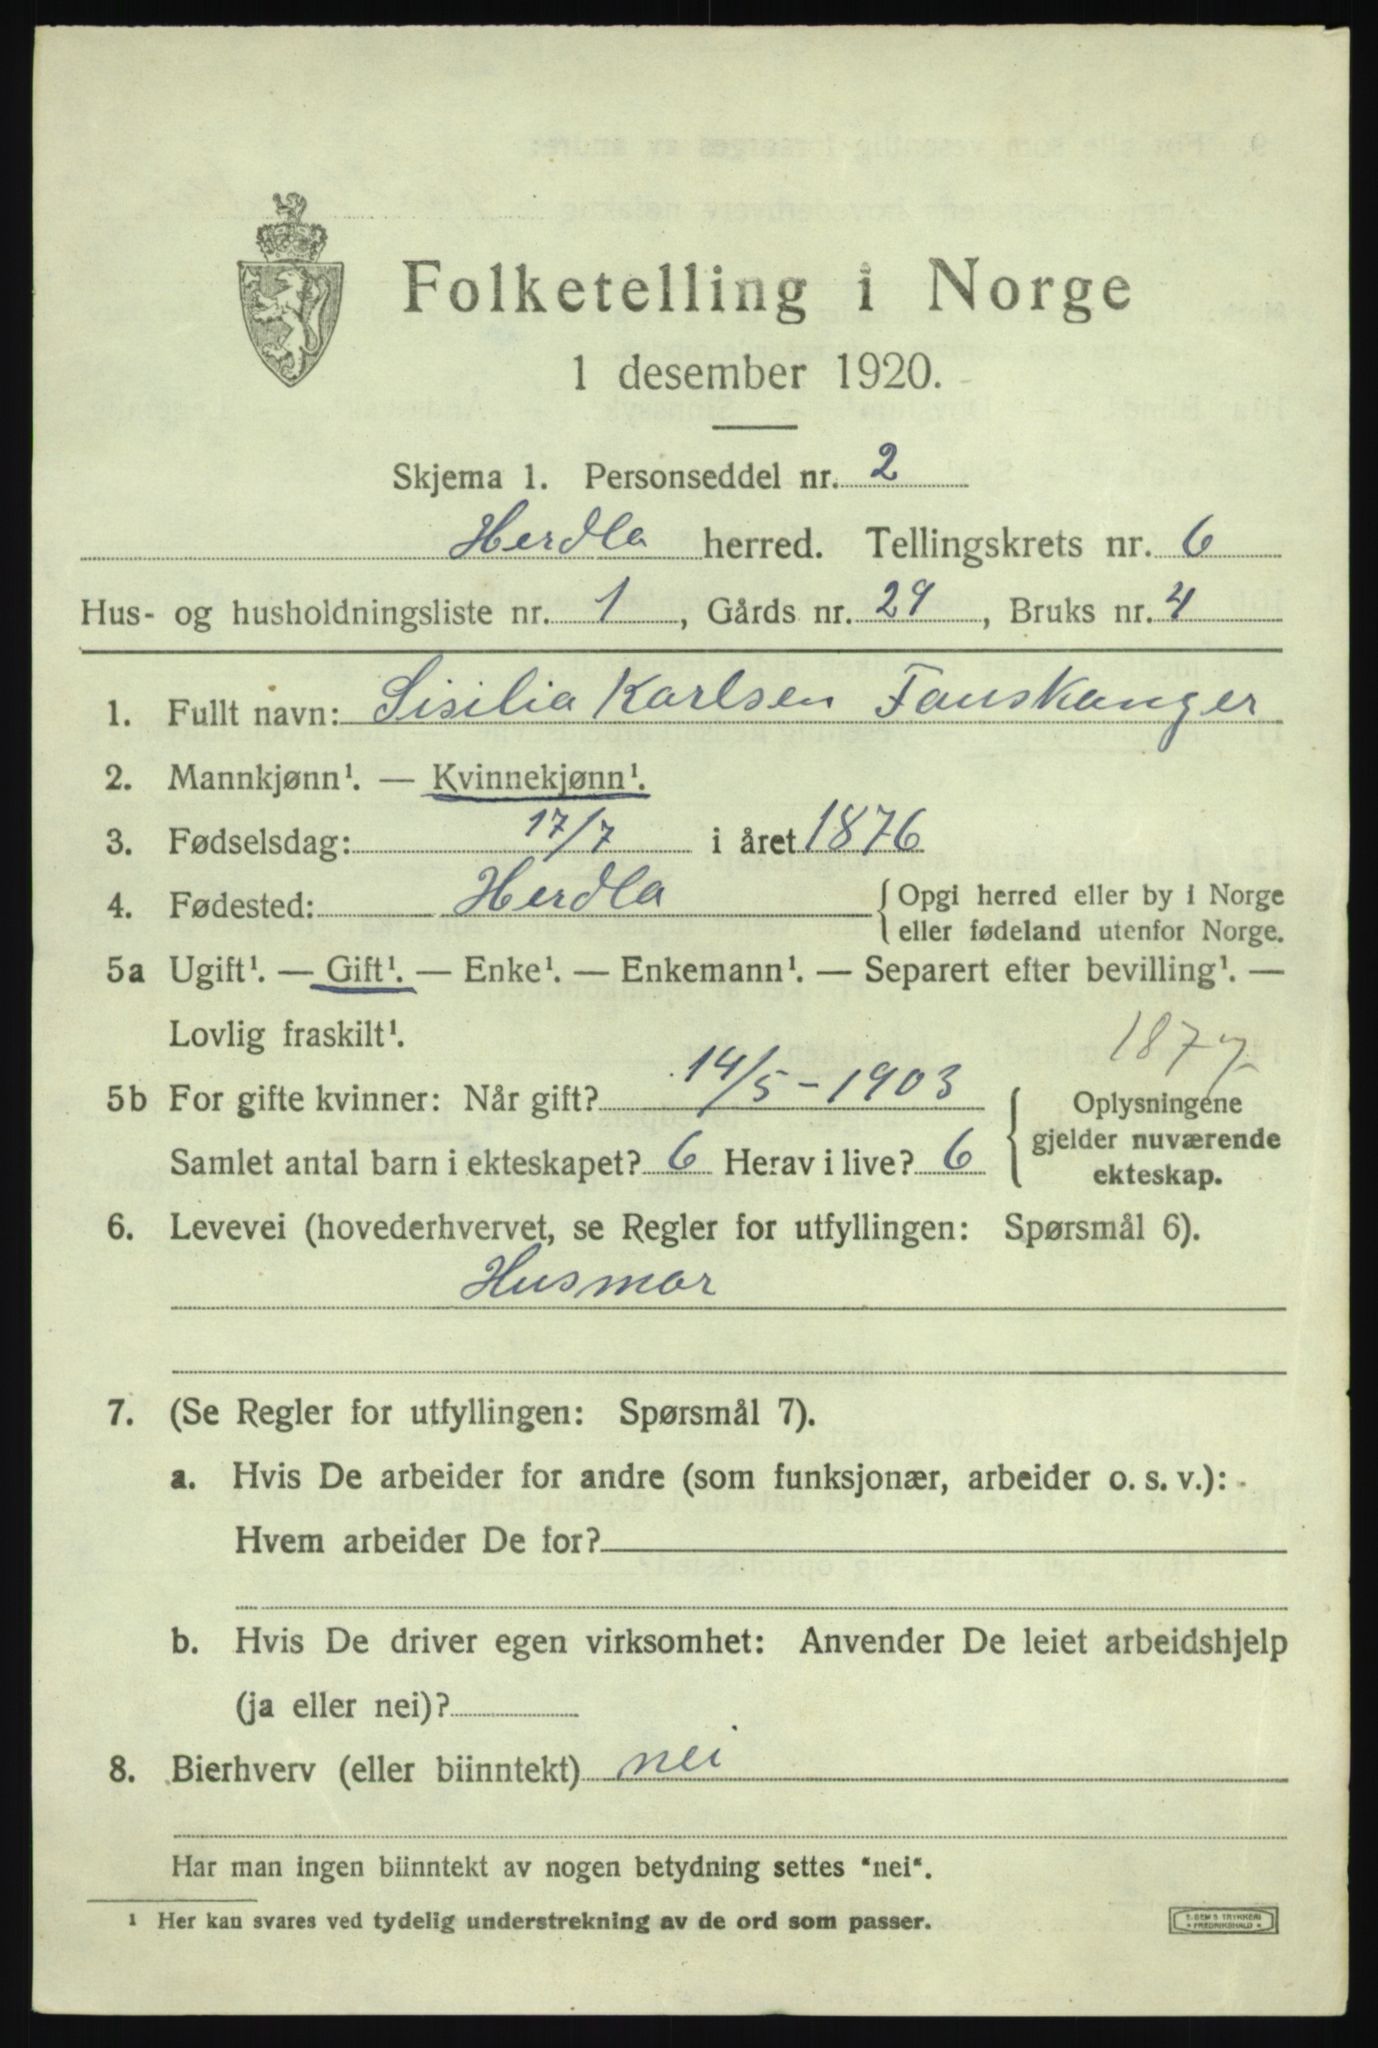 Folketelling i Norge
1 desember 1920.
Skjema 1. Personseddel nr. 2
Herdla herred. Tellingskrets nr. 6
Hus- og husholdningsliste nr. 1, Gårds nr. 29, Bruks nr. 4
1. Fullt navn: Sisilia Karlsen Fauskanger
2. Mannkjønn¹. — Kvinnekjønn¹.
3. Fødselsdag: 17/7 i året 1876
4. Fødested: Herdla {Opgi herred eller by i Norge
eller fødeland utenfor Norge.
5a Ugift¹. — Gift¹. — Enke¹. — Enkemann¹. — Separert efter bevilling¹. —
Lovlig fraskilt¹.
1877
5b For gifte kvinner: Når gift? 14/5-1903 { Oplysningene
gjelder nuværende
Samlet antal barn i ekteskapet? 6 Herav i live? 6
ekteskap.
6. Levevei (hovederhvervet, se Regler for utfyllingen: Spørsmål 6).
Husmor
7. (Se Regler for utfyllingen: Spørsmål 7).
a. Hvis De arbeider for andre (som funksjonær, arbeider o. s. v.):
Hvem arbeider De for?
b. Hvis De driver egen virksomhet: Anvender De leiet arbeidshjelp
(ja eller nei)?
8. Bierhverv (eller biinntekt) nei
Har man ingen biinntekt av nogen betydning settes "nei".
¹ Her kan svares ved tydelig understrekning av de ord som passer.